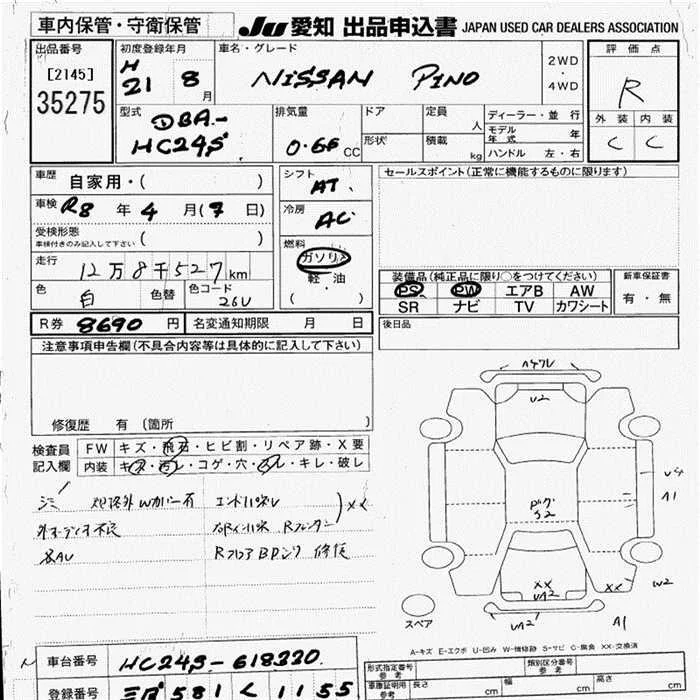 車内保管・守衛保管
JU 愛知 出品申込書 JAPAN USED CAR DEALERS ASSOCIATION
出品番号
[2145]
35275
初度登録年月
H
21 8月
車名・グレード
NISSAN PINO
2WD
・
4WD
評価点
R
外装 内装
C C
型式
DBA-
HC24S
排気量
0.66 CC
ドア
形状
定員
人
積載
kg
ディーラー・並行
モデル年式 年
ハンドル 左・右
車歴
自家用・( )
車検 R8 年 4 月(7 日)
受検形態
車検付きのみ記入して下さい ( )
走行
12万8千527km
色
白
色替
色コード
26U
シフト
AT.
冷房
AC
燃料
ガソリン
・
軽油
( )
セールスポイント(正常に機能するものに限ります)
装備品(純正品に限り○をつけてください)
PS PW エアB AW
SR ナビ TV カワシート
新車保証書
有・無
R券 8690 円
名変通知期限 月 日
後日品
注意事項申告欄(不具合内容等は具体的に記入して下さい)
修復歴 有(箇所 )
検査員
記入欄
FW キズ・飛石・ヒビ割・リペア跡・X要
内装 キズ・汚レ・コゲ・穴・スレ・キレ・破レ
シミ
外オーディオ不良
エンドパネル
XX
右インナーパネル Rフェンダー
Rフロア 修正
U2
U4
A1
S2
XX
UA2
XX
W2
UA2
A1
スペア
A-キズ E-エクボ U-凹み W-補修跡 S-サビ C-腐食 XX-交換済
車台番号 HC24S-618320
登録番号 581 く 1155
形式指定番号
参考
類別区分番号
参考
車庫証明用
参考
長さ cm
幅 cm
高さ cm